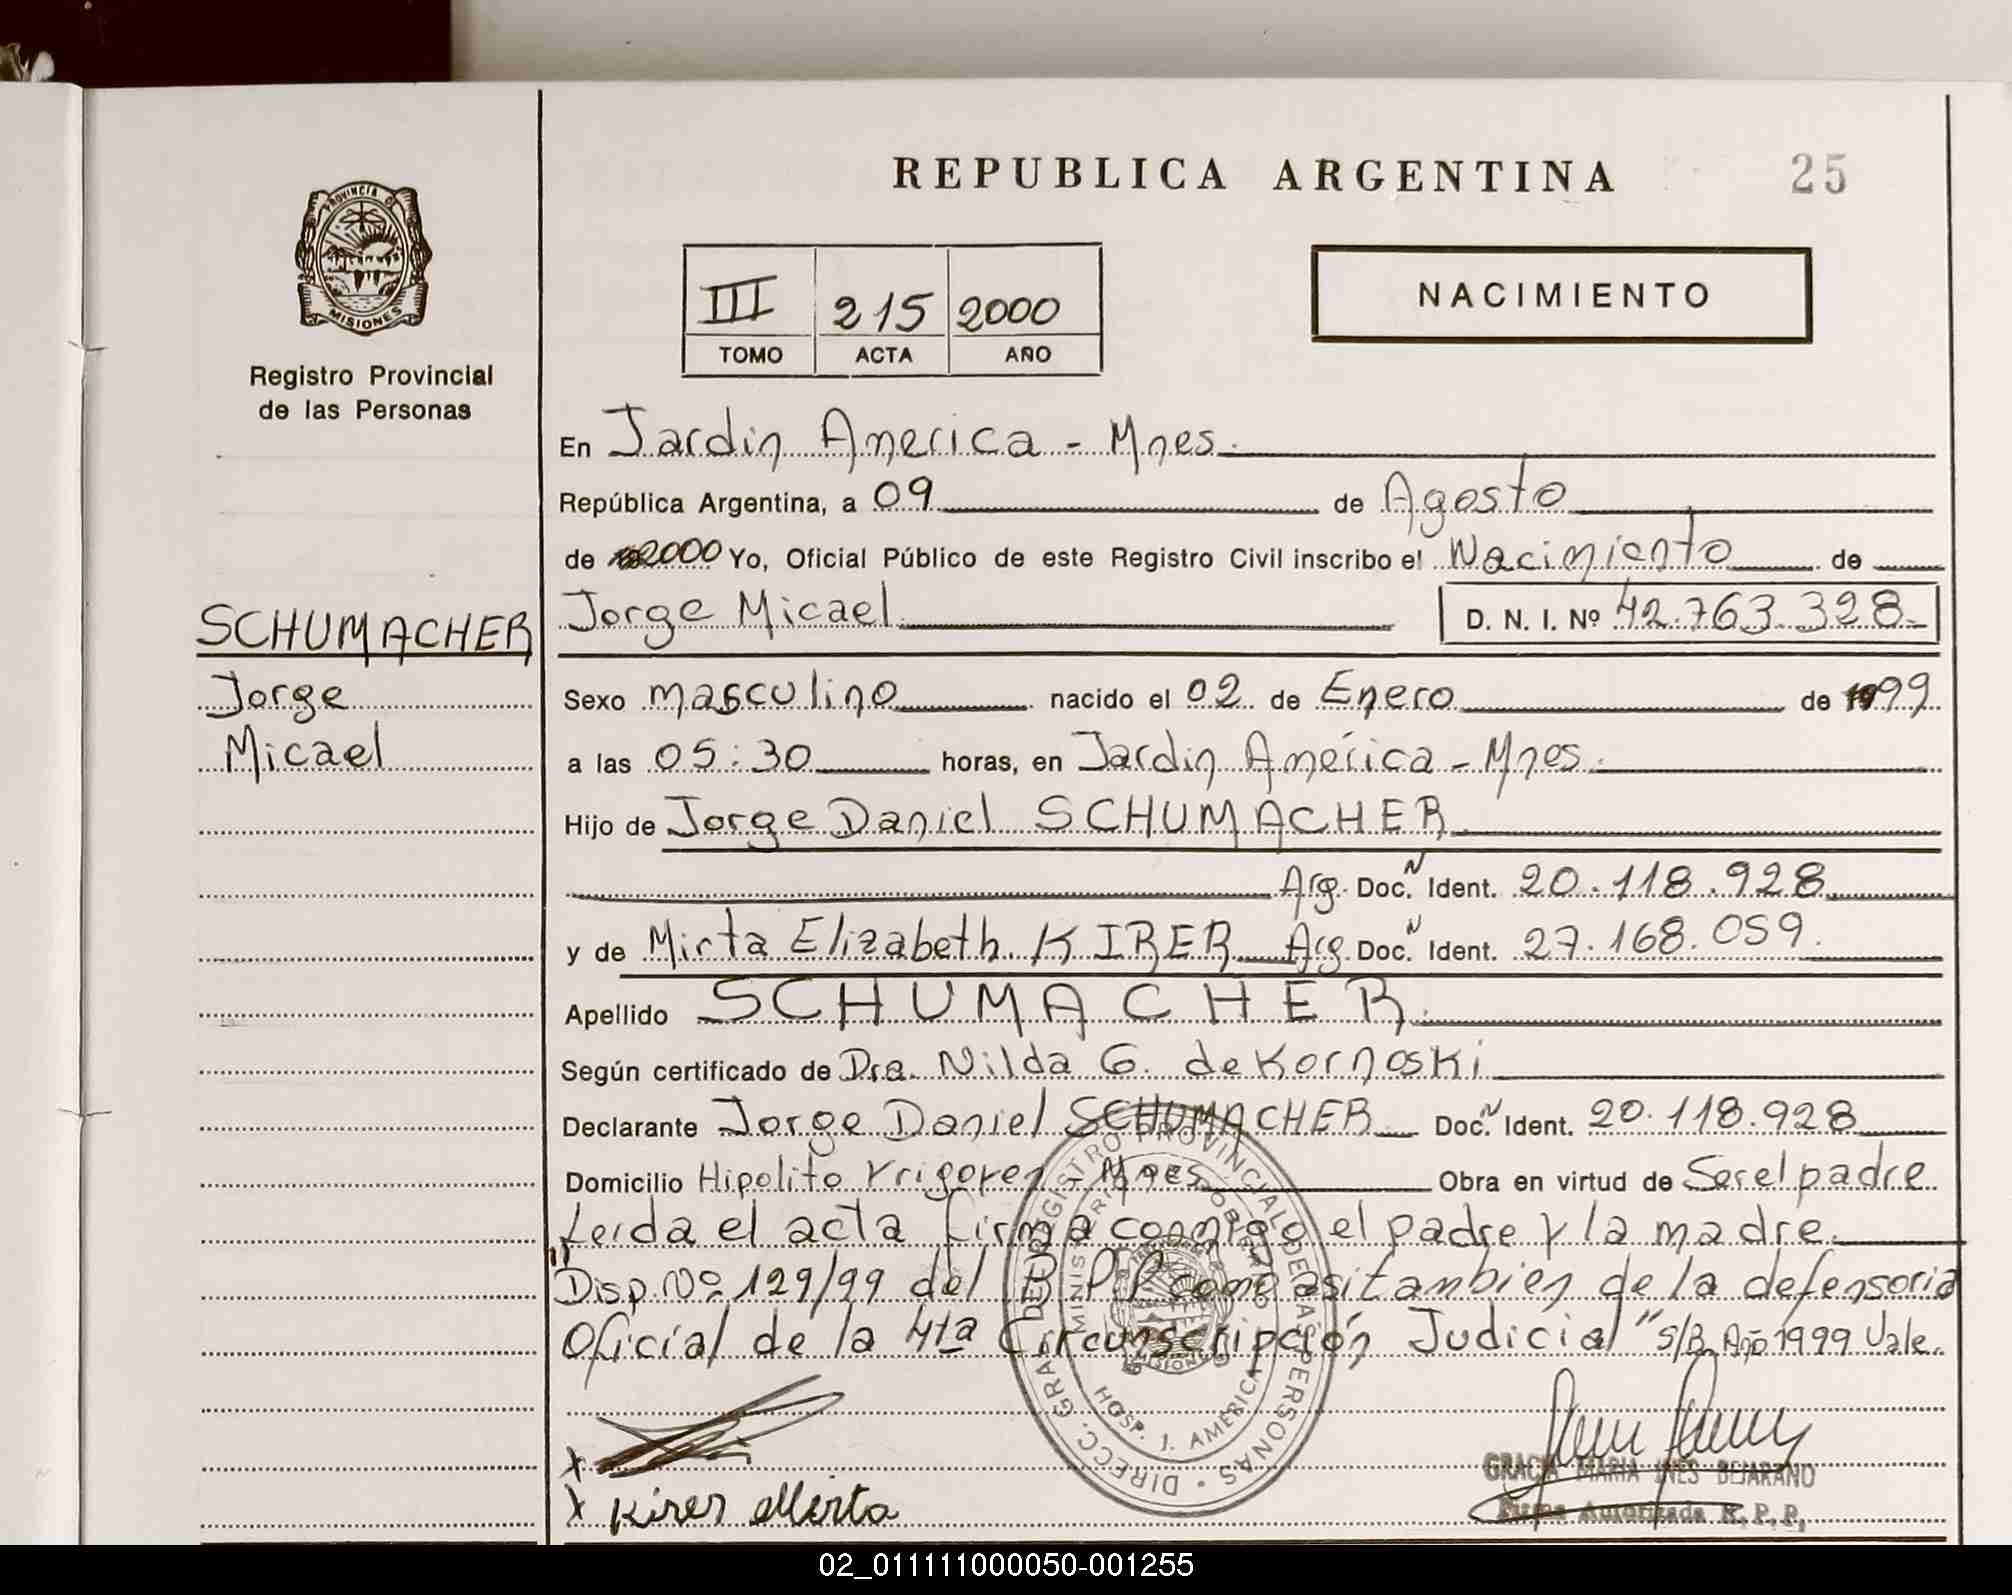 REPUBLICA ARGENTINA
25
PROVINCIA DE MISIONES
Registro Provincial
de las Personas
III 215 2000
TOMO ACTA AÑO
NACIMIENTO
En Jardin America - Mnes.
República Argentina, a 09 de Agosto
de 2000 Yo, Oficial Público de este Registro Civil inscribo el Nacimiento de
Jorge Micael D. N. I. Nº 42.763.328
SCHUMACHER
Jorge
Micael
Sexo masculino nacido el 02 de Enero de 1999
a las 05:30 horas, en Jardin América - Mnes.
Hijo de Jorge Daniel SCHUMACHER
Arg. Doc. N Ident. 20.118.928
y de Mirta Elizabeth KIRER Arg. Doc. N Ident. 27.168.059.
Apellido SCHUMACHER
Según certificado de Dra. Nilda G. de Kornoski
Declarante Jorge Daniel SCHUMACHER Doc. N Ident. 20.118.928
Domicilio Hipolito Yrigoyen - Mnes Obra en virtud de Ser el padre
Leida el acta firma conmigo el padre y la madre.
"Disp. Nº 129/99 del R.P.P. como asi tambien de la defensoria
Oficial de la 4ta Circunscripción Judicial" S/B Año 1999 Vale.
DIRECC. GRAL. DEL REGISTRO PROVINCIAL DE LAS PERSONAS
MINISTERIO DE GOBIERNO
MISIONES
HOSP. J. AMERICA
x
x Kirer Mirta
GRACIA MARIA INES BEJARANO
Firma Autorizada R. P. P.
02_011111000050-001255